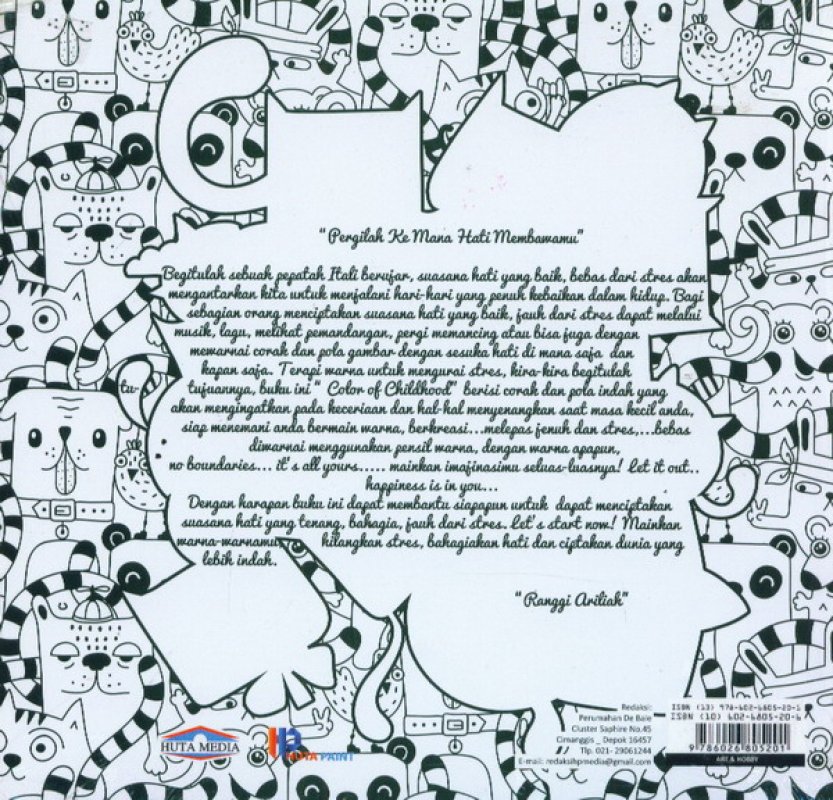 " Pergilah Ke Mana Hati Membawamu"
Begitulah sebuah pepatah Itali berujar, suasana hati yang baik, bebas dari stres akan
mengantarkan kita untuk menjalani hari-hari yang penuh kebaikan dalam hidup. Bagi
sebagian orang menciptakan suasana hati yang baik, jauh dari stres dapat melalui
musik, lagu, melihat pemandangan, pergi memancing atau bisa juga dengan
mewarnai corak dan pola gambar dengan sesuka hati di mana saja dan
kapan saja. Terapi warna untuk mengurai stres, kira-kira begitulah
tu-
tujuannya, buku ini " Color of Childhood" berisi corak dan pola indah yang
akan mengingatkan pada keceriaan dan hal-hal menyenangkan saat masa kecil anda,
siap menemani anda bermain warna, berkreasi...melepas jenuh dan stres,...bebas
diwarnai menggunakan pensil warna, dengan warna apapun,
no boundaries... it's all yours..... mainkan imajinasimu seluas-luasnya! Let it out..
happiness is in you...
Dengan harapan buku ini dapat membantu siapapun untuk dapat menciptakan
suasana hati yang tenang, bahagia, jauh dari stres. Let's start now! Mainkan
warna-warnamu, hilangkan stres, bahagiakan hati dan ciptakan dunia yang
lebih indah.
" Ranggi Ariliah"
HUTA MEDIA
HP HUTA PAINT
Redaksi:
Perumahan De Bale
Cluster Saphire No.45
Cimanggis _ Depok 16457
Tlp. 021- 29061244
E-mail: redaksihpmedia@gmail.com
ISBN (13) 978-602-6805-20-1
ISBN (10) 602-6805-20-6
9 786026 805201
ART & HOBBY